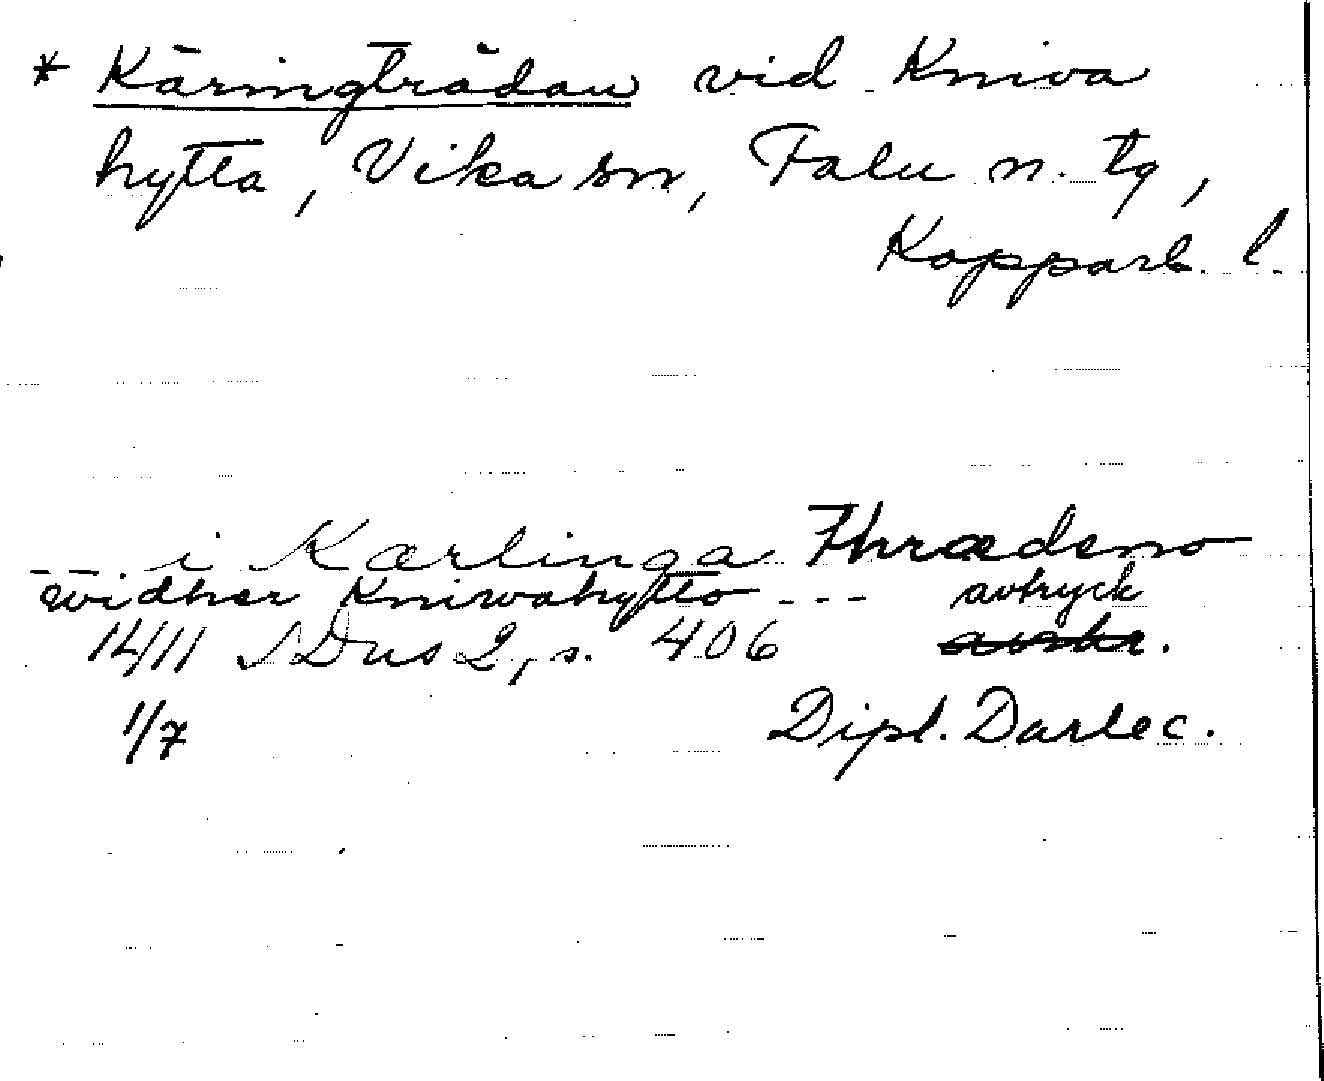 * Käringträdan vid Kniva
hytta, Vika sn, Falu n. tg,
Kopparb. l.
--- i Kærlinga Thrædeno
widher Kniwahytto --- avtryck
1411 SDns 2, s. 406 avskr.
1/7 Dipl. Darlec.